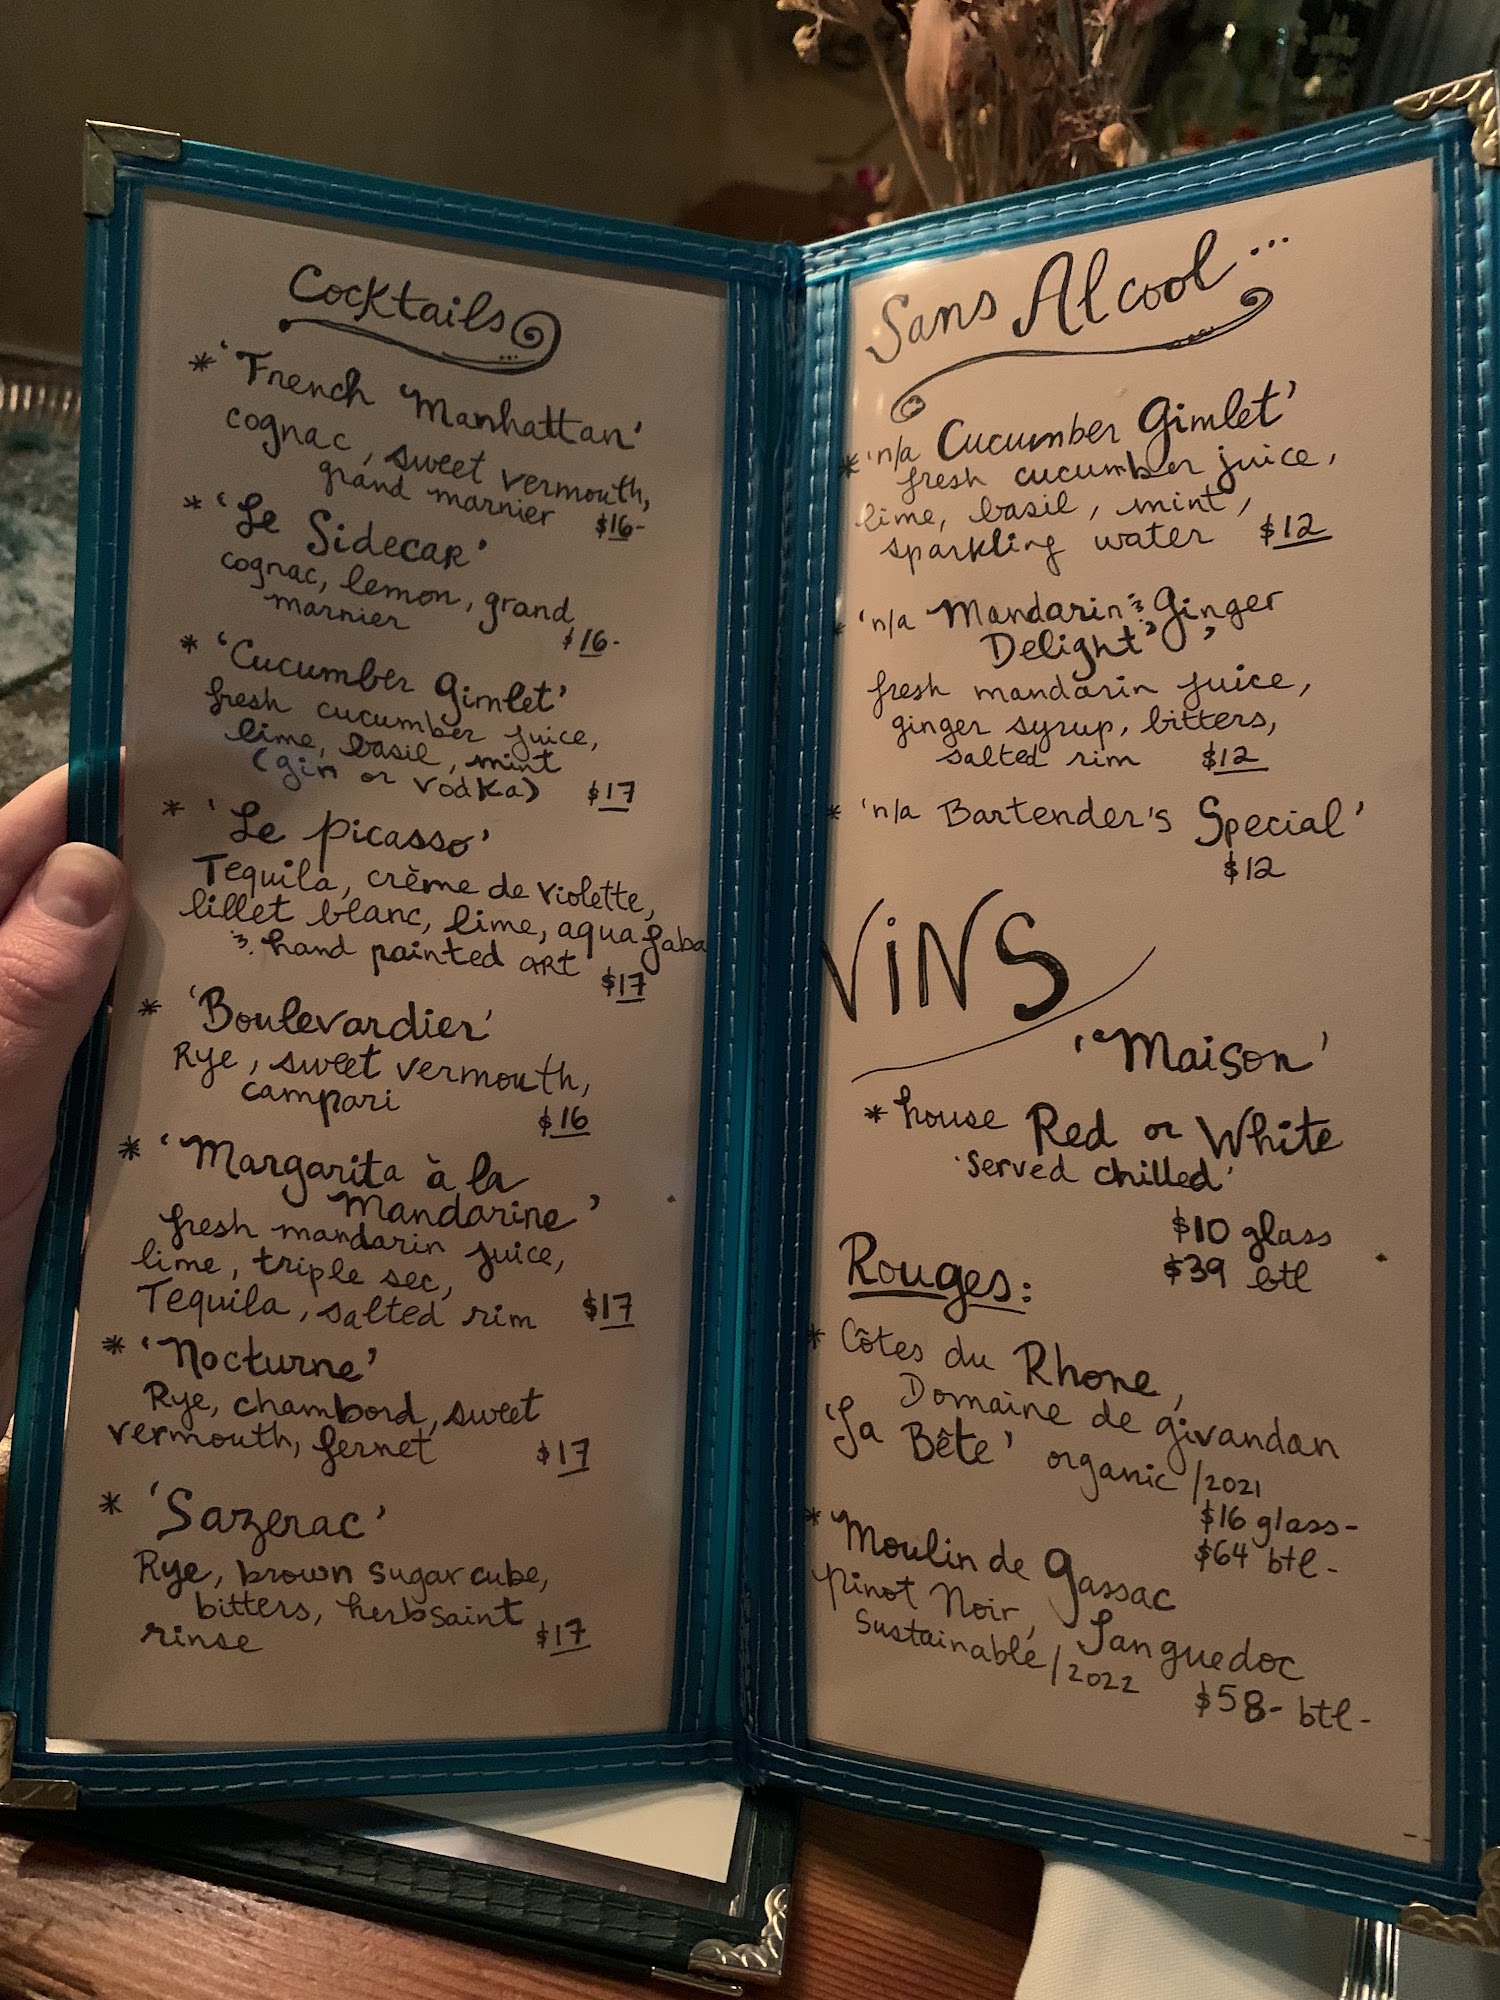 Cocktails
* 'French Manhattan'
cognac, sweet vermouth,
grand marnier $16-
* 'Le Sidecar'
cognac, lemon, grand
marnier $16-
* 'Cucumber Gimlet'
fresh cucumber juice,
lime, basil, mint
(gin or vodka) $17
* 'Le Picasso'
Tequila, crème de violette,
lillet blanc, lime, aqua faba
& hand painted ART $17
* 'Boulevardier'
Rye, sweet vermouth,
campari $16
* 'Margarita à la
Mandarine'
fresh mandarin juice,
lime, triple sec,
Tequila, salted rim $17
* 'Nocturne'
Rye, chambord, sweet
vermouth, fernet $17
* 'Sazerac'
Rye, brown sugar cube,
bitters, herbsaint
rinse $17
Sans Alcool...
* 'n/a Cucumber Gimlet'
fresh cucumber juice,
lime, basil, mint,
sparkling water $12
* 'n/a Mandarin & Ginger
Delight'
fresh mandarin juice,
ginger syrup, bitters,
salted rim $12
* 'n/a Bartender's Special'
$12
ViNS
'Maison'
* house Red or White
'served chilled'
$10 glass
$39 btl
Rouges:
* Côtes du Rhone,
Domaine de Givandan
'La Bête' organic /2021
$16 glass-
$64 btl-
* Moulin de Gassac
Pinot Noir, Languedoc
Sustainable /2022
$58- btl-